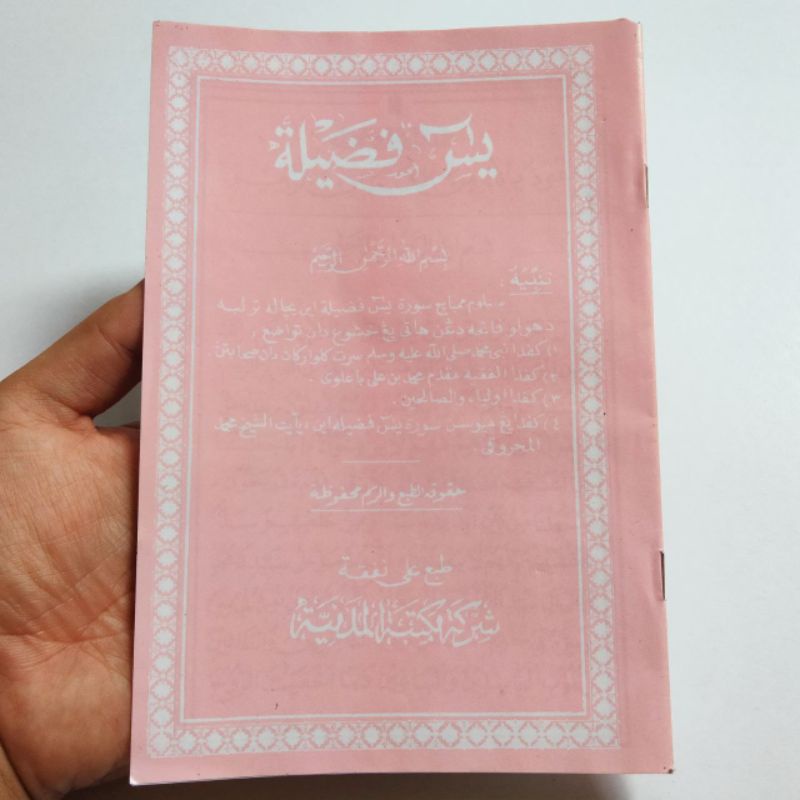 يس فضيلة
بسم الله الرحمن الرحيم
تنبيه :
سبلوم ممباچ سورة يس فضيلة اين بچاله ترلبه
دهولو فاتحه دڠن هاتي يڠ خشوع دان تواضع ،
١) كفدا نبي محمد صلى الله عليه وسلم سرت كلوارݢان دان صحابتن .
٢) كفدا الفقيه مقدم محمد بن علي باعلوى .
٣) كفدا اولياء والصالحين .
٤) كفدا يڠ ميوسن سورة يس فضيله اين دياءيت الشيخ محمد
المحروقى .
حقوق الطبع والرسم محفوظة
طبع على نفقة
شركة مكتبة المدنية